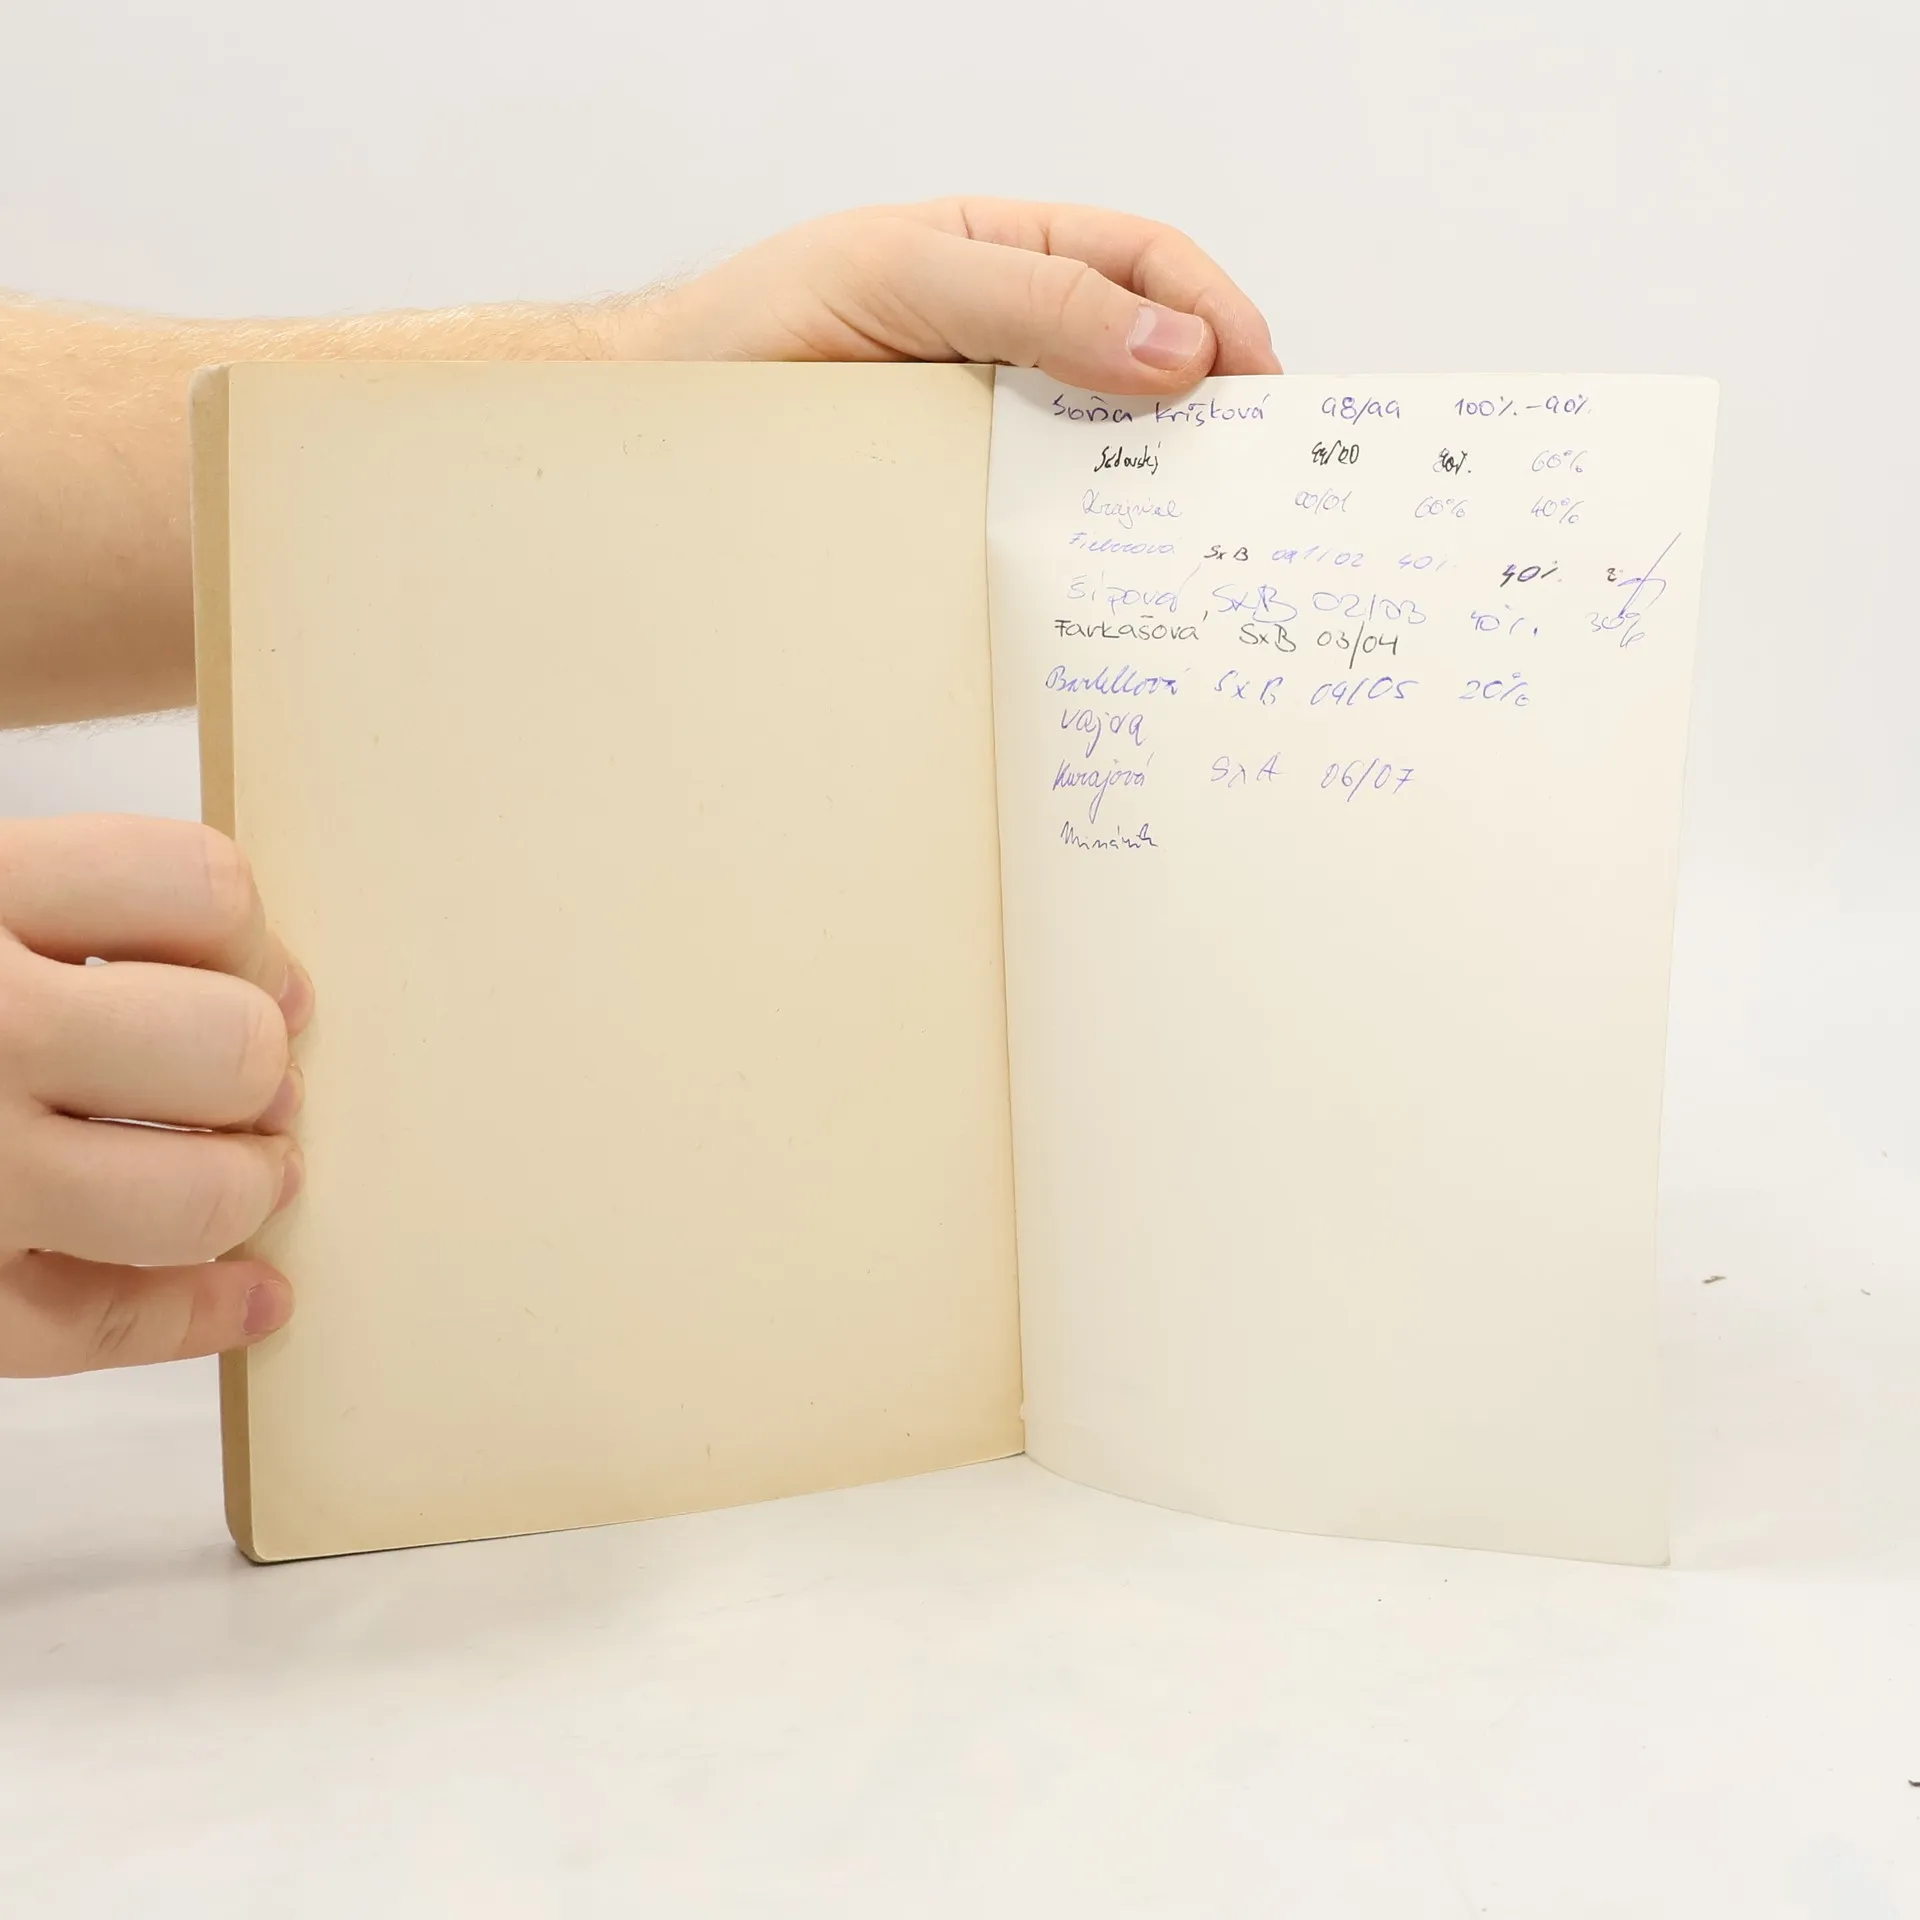 Soňa Krišková 98/99 100%.-90%.
Sadovský 99/00 90%. 60%
00/01 60% 40%
SxB 01/02 40% 40%.
Šípová, SxB 02/03 40%. 30%
Farkašová SxB 03/04
SxB 04/05 20%
Vajda
Kurajová SxA 06/07
Minárik